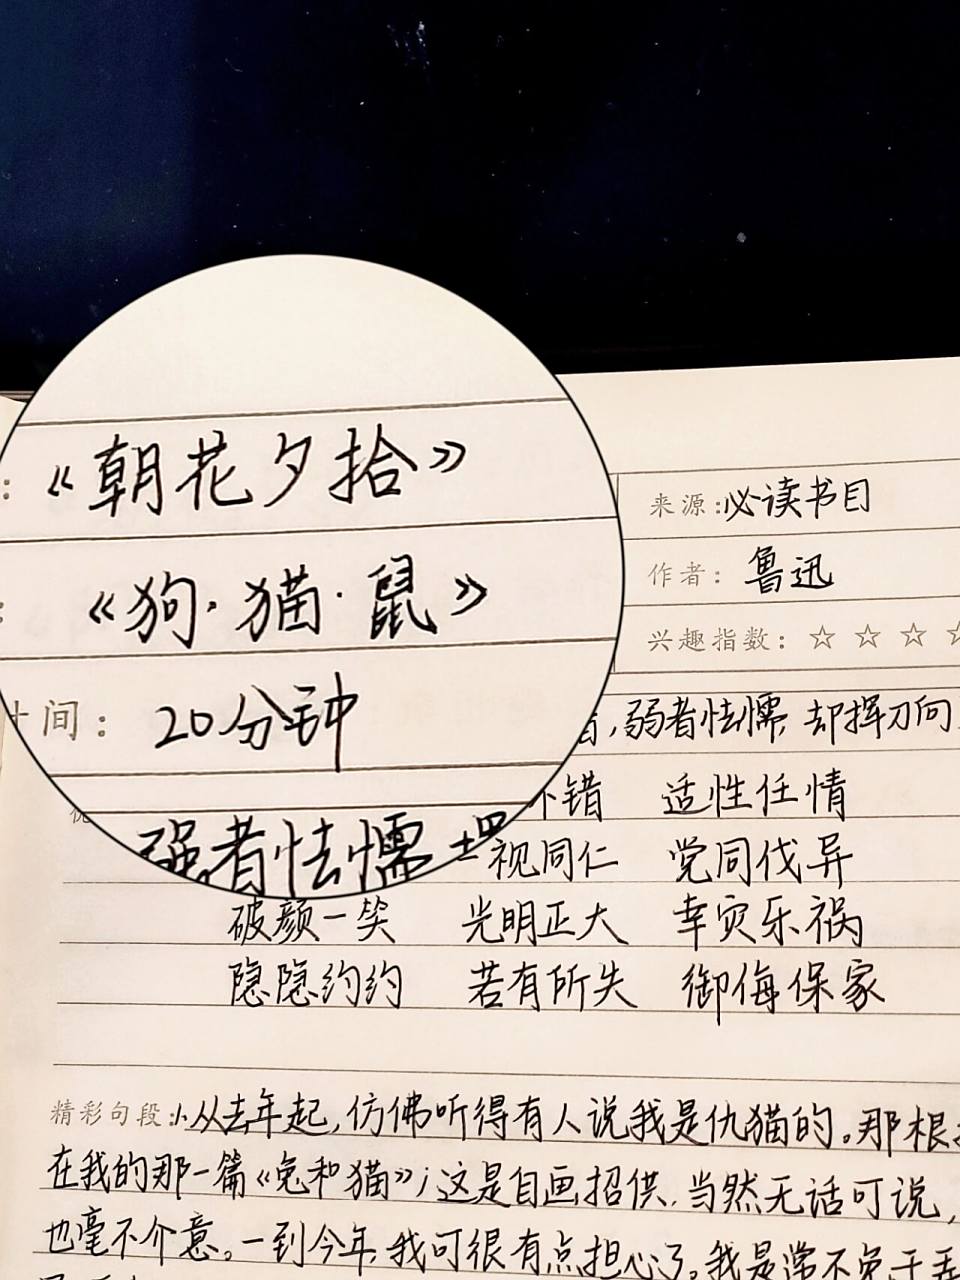 《朝花夕拾》
来源:必读书目
《狗·猫·鼠》
作者: 鲁迅
兴趣指数: ☆ ☆ ☆
间: 20分钟
弱者怯懦 却挥刀向
强者怯懦
不错 适性任情
一视同仁 党同伐异
破颜一笑 光明正大 幸灾乐祸
隐隐约约 若有所失 御侮保家
精彩句段: 从去年起,仿佛听得有人说我是仇猫的。那根
在我的那一篇《兔和猫》;这是自画招供,当然无话可说,
也毫不介意。一到今年,我可很有点担心了。我是常不免于弄